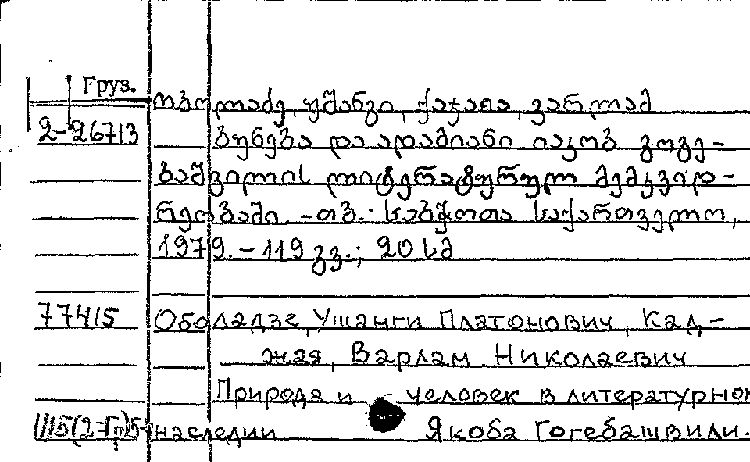 Груз.
ობოლაძე, უშანგი, ქაჯაია, ვარლამ
2-26713 ბუნება და ადამიანი იაკობ გოგე-
ბაშვილის ლიტერატურულ მემკვიდ-
რეობაში. - თბ.: საბჭოთა საქართველო,
1979. - 119 გვ.; 20 სმ
77415 Оболадзе, Ушанги Платонович, Кад-
жая, Варлам Николаевич
Природа и человек в литературном
наследии Якоба Гогебашвили.